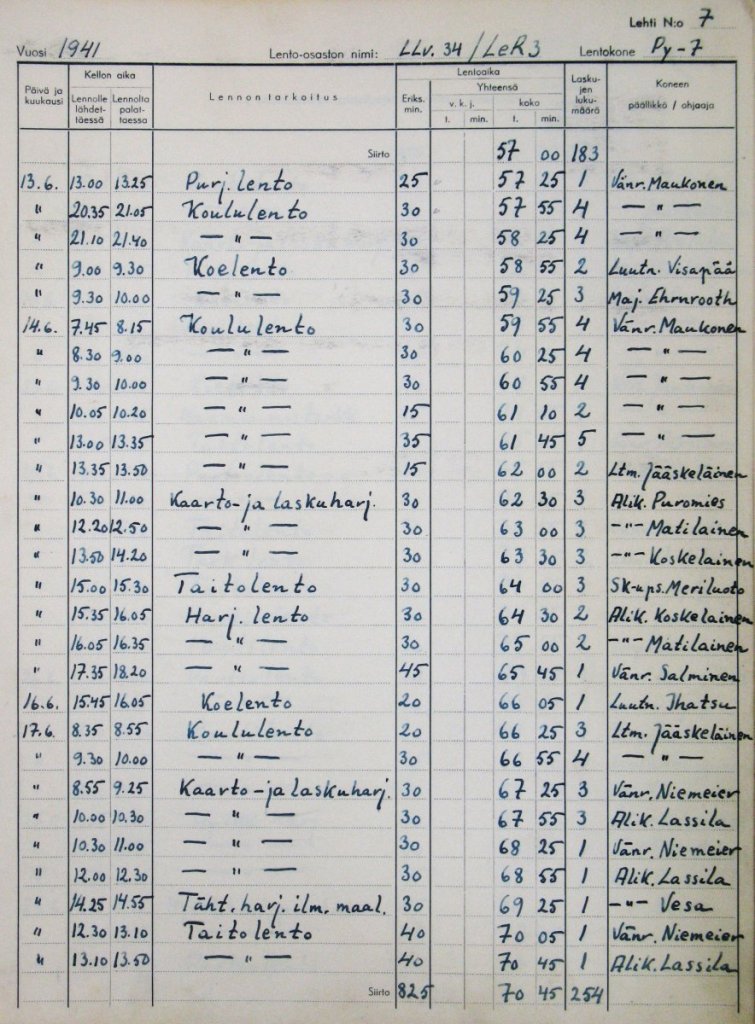 Lehti N:o 7
Vuosi 1941 Lento-osaston nimi: LLv. 34/LeR3 Lentokone Py-7
Päivä ja kuukausi Kellon aika Lennolle lähdettäessä Lennolta palattaessa Lennon tarkoitus Eriks. min. Lentoaika Yhteensä v. k. j. t. min. koko t. min. Laskujen lukumäärä Koneen päällikkö / ohjaaja
Siirto 57 00 183
13.6. 13.00 13.25 Purj. lento 25 57 25 1 Vänr. Maukonen
" 20.35 21.05 Koululento 30 57 55 4 — " —
" 21.10 21.40 — " — 30 58 25 4 — " —
" 9.00 9.30 Koelento 30 58 55 2 Luutn. Visapää
" 9.30 10.00 — " — 30 59 25 3 Maj. Ehrnrooth
14.6. 7.45 8.15 Koululento 30 59 55 4 Vänr. Maukonen
" 8.30 9.00 — " — 30 60 25 4 — " —
" 9.30 10.00 — " — 30 60 55 4 — " —
" 10.05 10.20 — " — 15 61 10 2 — " —
" 13.00 13.35 — " — 35 61 45 5 — " —
" 13.35 13.50 — " — 15 62 00 2 Ltm. Jääskeläinen
" 10.30 11.00 Kaarto-ja laskuharj. 30 62 30 3 Alik. Puromies
" 12.20 12.50 — " — 30 63 00 3 -"- Matilainen
" 13.50 14.20 — " — 30 63 30 3 -"- Koskelainen
" 15.00 15.30 Taitolento 30 64 00 3 Sk-ups. Meriluoto
" 15.35 16.05 Harj. lento 30 64 30 2 Alik. Koskelainen
" 16.05 16.35 — " — 30 65 00 2 -"- Matilainen
" 17.35 18.20 — " — 45 65 45 1 Vänr. Salminen
16.6. 15.45 16.05 Koelento 20 66 05 1 Luutn. Ihatsu
17.6. 8.35 8.55 Koululento 20 66 25 3 Ltm. Jääskeläinen
" 9.30 10.00 — " — 30 66 55 4 — " —
" 8.55 9.25 Kaarto-ja laskuharj. 30 67 25 3 Vänr. Niemeier
" 10.00 10.30 — " — 30 67 55 3 Alik. Lassila
" 10.30 11.00 — " — 30 68 25 1 Vänr. Niemeier
" 12.00 12.30 — " — 30 68 55 1 Alik. Lassila
" 14.25 14.55 Täht. harj. ilm. maal. 30 69 25 1 -"- Vesa
" 12.30 13.10 Taitolento 40 70 05 1 Vänr. Niemeier
" 13.10 13.50 — " — 40 70 45 1 Alik. Lassila
Siirto 825 70 45 254